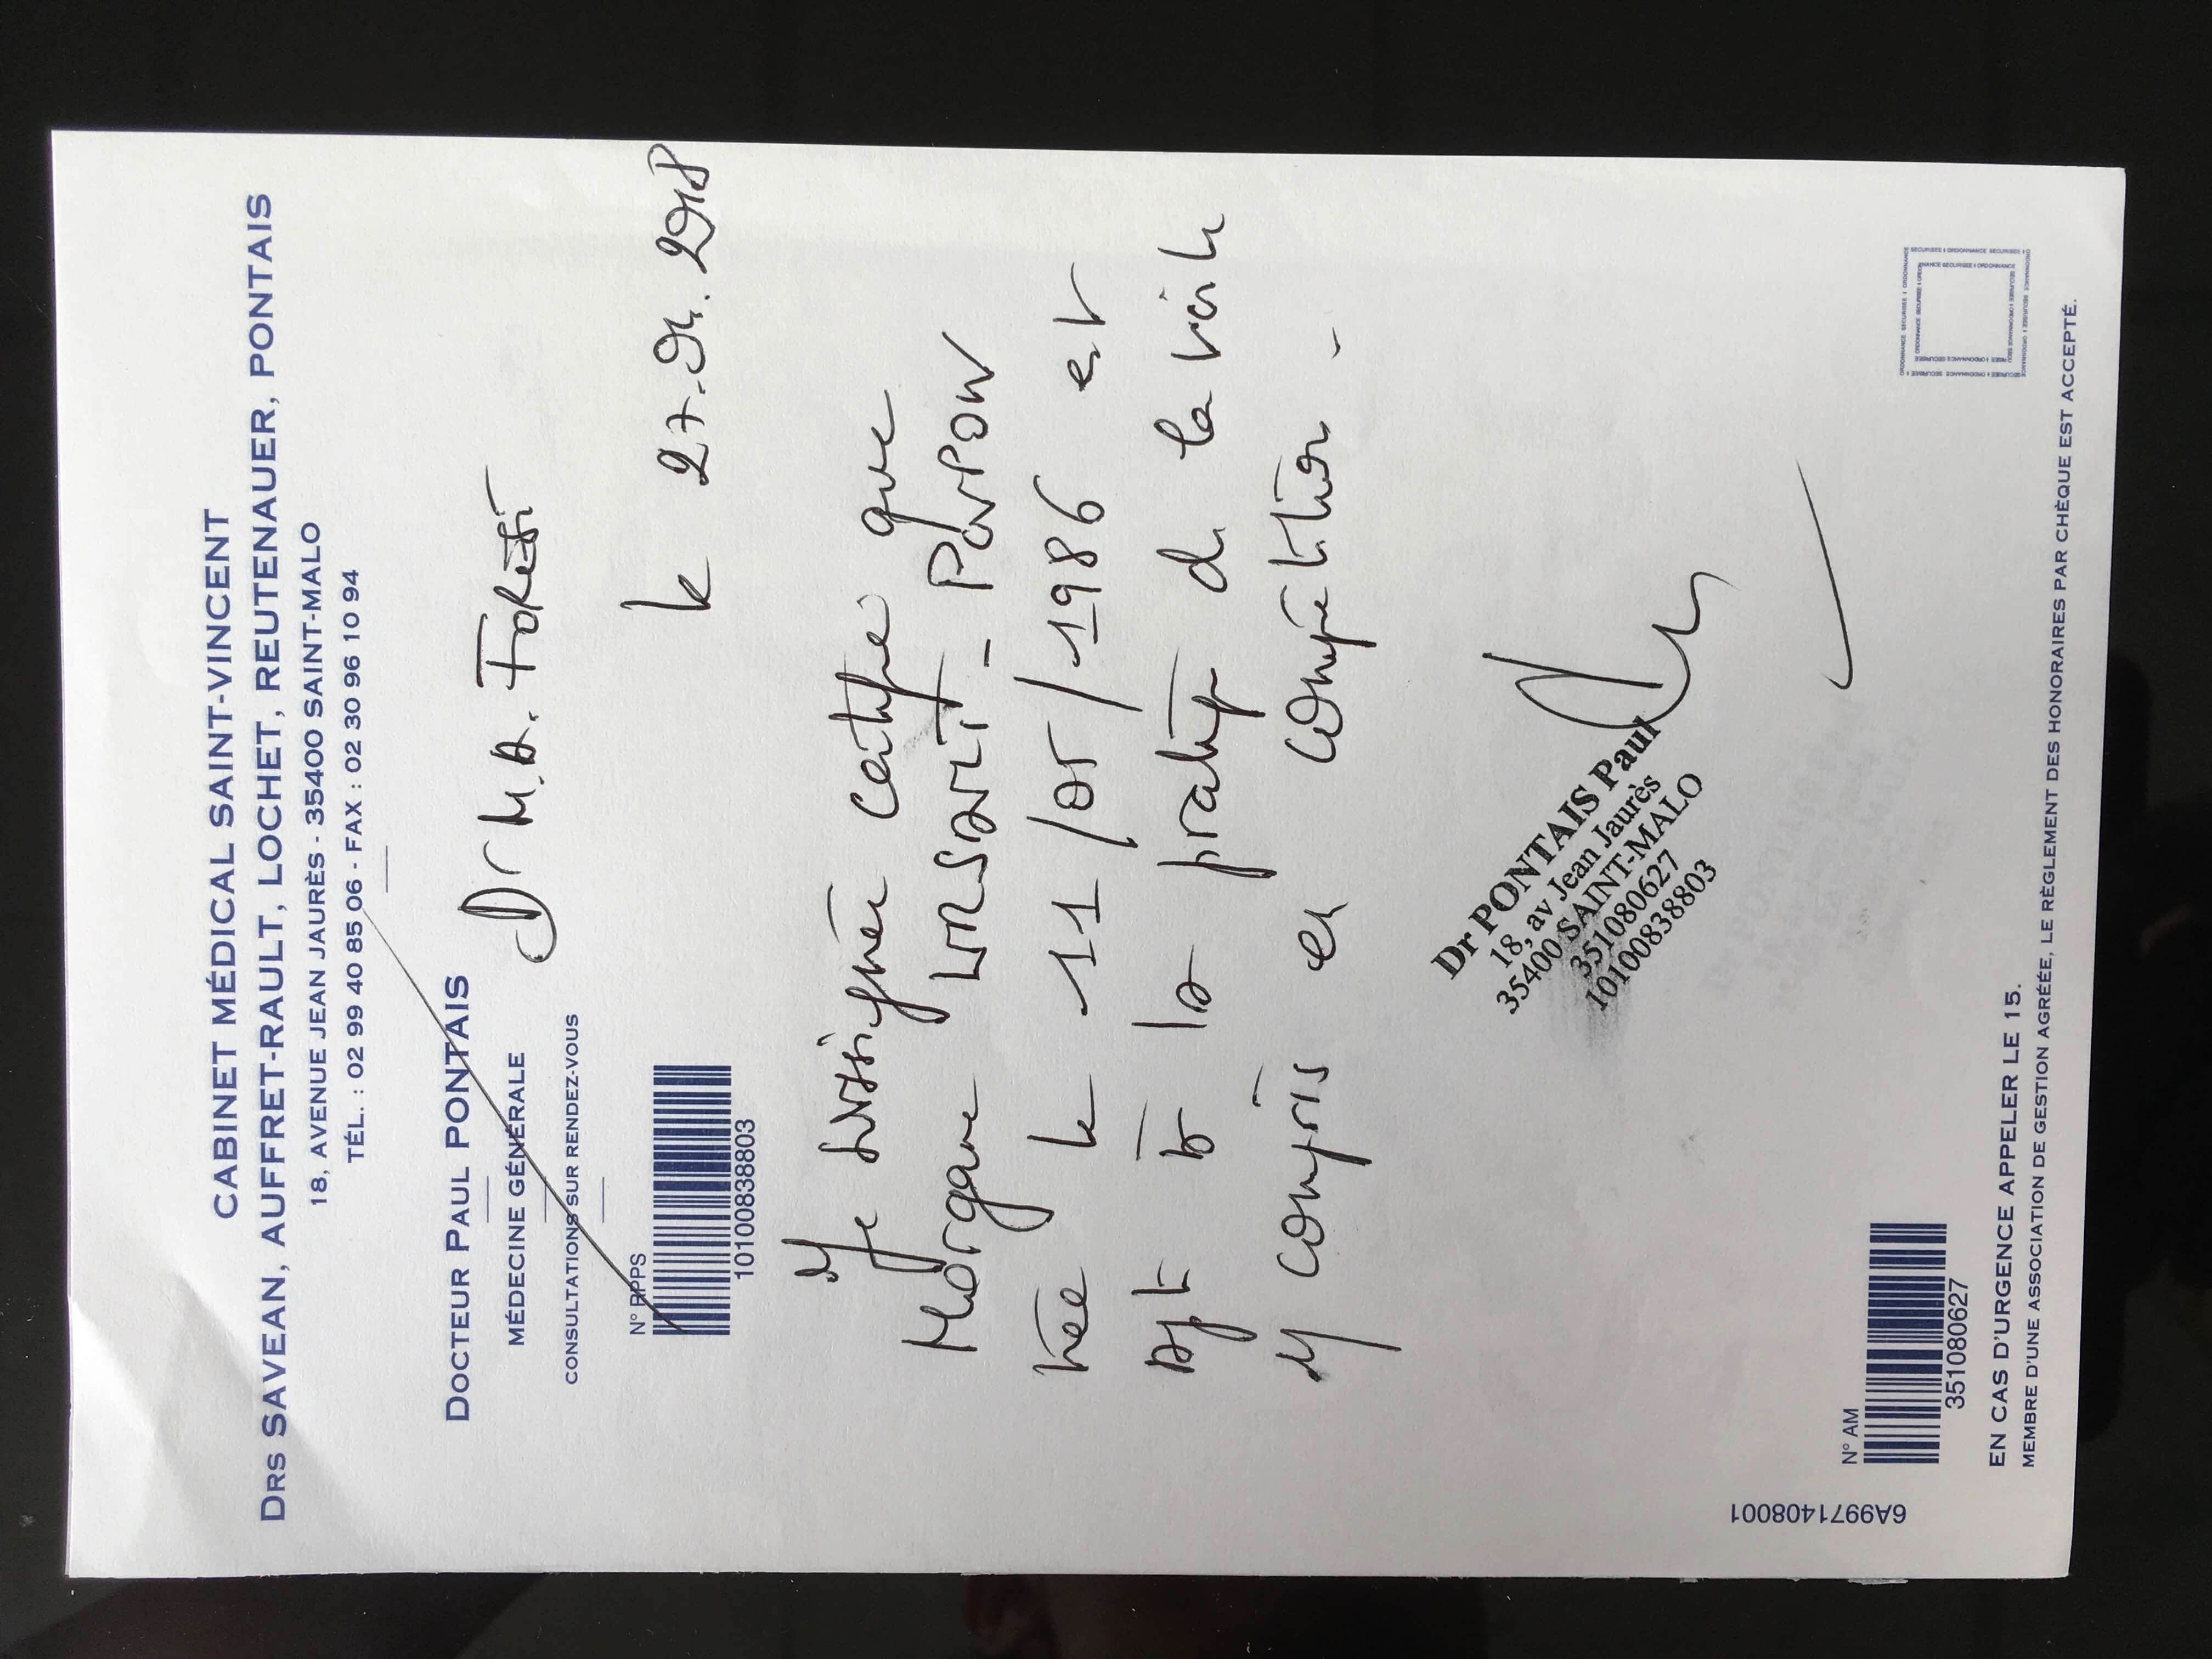 CABINET MÉDICAL SAINT-VINCENT
DRS SAVEAN, AUFFRET-RAULT, LOCHET, REUTENAUER, PONTAIS
18, AVENUE JEAN JAURÈS - 35400 SAINT-MALO
TÉL. : 02 99 40 85 06 - FAX : 02 30 96 10 94
DOCTEUR PAUL PONTAIS
MÉDECINE GÉNÉRALE
CONSULTATIONS SUR RENDEZ-VOUS
N° RPPS
10100838803
Dr M.A. FORESTI
le 27.04.2018
Je soussignée certifie que
Morgane - POUPON
née le 11/05/1986 est
apte à la pratique de la voile
y compris en compétition.
Dr PONTAIS Paul
18, av Jean Jaurès
35400 SAINT-MALO
351080627
10100838803
N° AM
351080627
EN CAS D'URGENCE APPELER LE 15.
MEMBRE D'UNE ASSOCIATION DE GESTION AGRÉÉE, LE RÈGLEMENT DES HONORAIRES PAR CHÈQUE EST ACCEPTÉ.
6A9971408001
ORDONNANCE SECURISEE